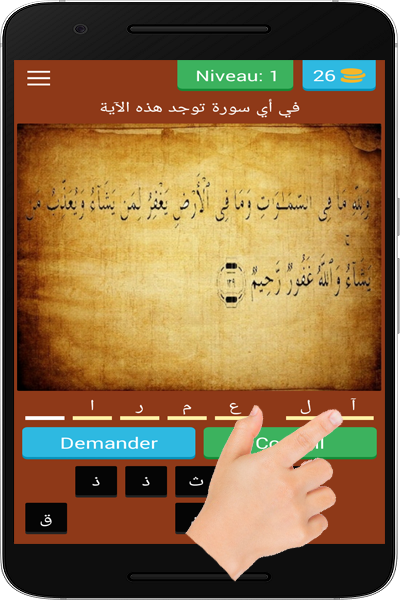 Niveau: 1
26
في أي سورة توجد هذه الآية
وَلِلَّهِ مَا فِى ٱلسَّمَـٰوَٰتِ وَمَا فِى ٱلْأَرْضِ يَغْفِرُ لِمَن يَشَآءُ وَيُعَذِّبُ مَن
يَشَآءُ وَٱللَّهُ غَفُورٌ رَّحِيمٌ ١٢٩
آ ل ع م ر ا
Demander
ث ذ ذ
ق